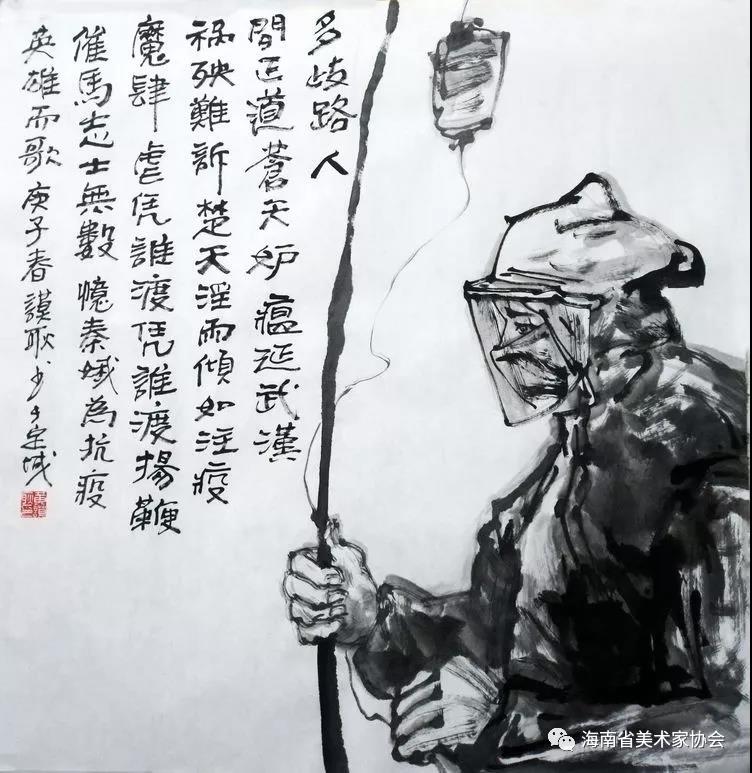 多歧路人
間正道蒼天妒瘟延武漢
祸殃難訴楚天淫雨傾如注疫
魔肆虐凭誰渡凭誰渡揚鞭
催馬志士無數憶秦娥為抗疫
英雄而歌庚子春謨耿书于定城
海南省美术家协会